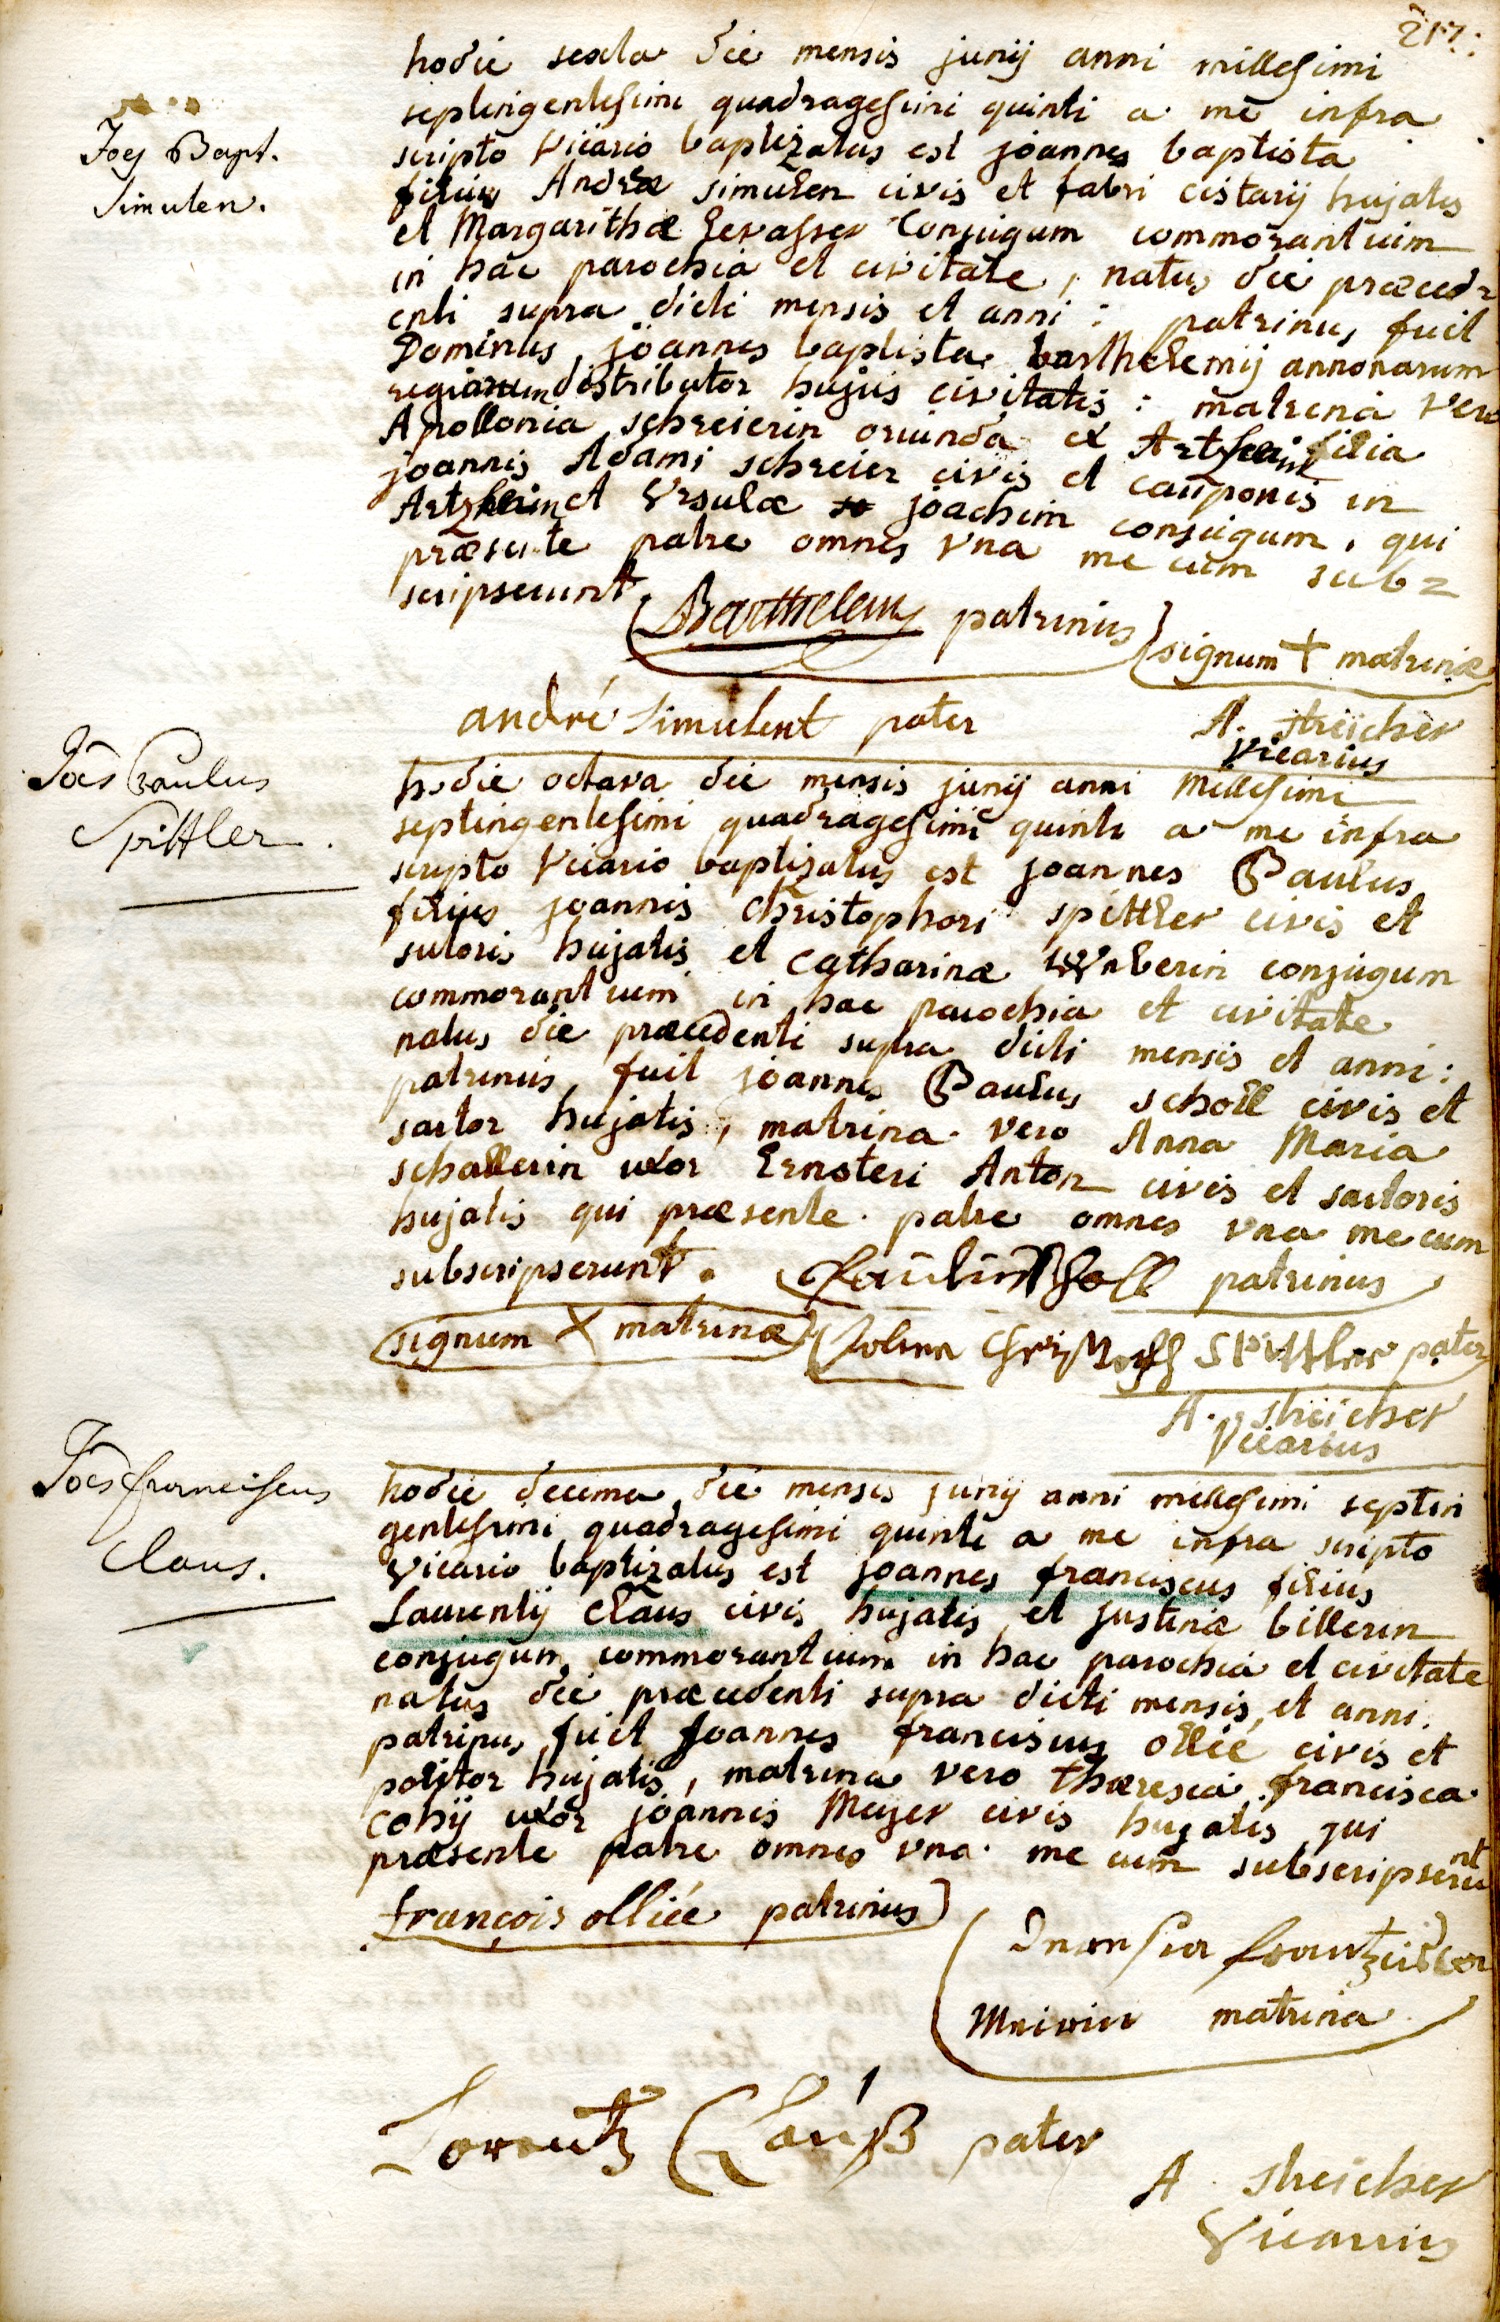 217.
Joes Bapt.
Simulen.
hodie sexta die mensis junij anni millesimi
septingentesimi quadragesimi quinti a me infra
scripto vicario baptizatus est joannes baptista
filius Andræ simulen civis et fabri cistarij hujatis
et Margarithæ Gevasser Conjugum commorantium
in hac parochia et civitate, natus die præced=
enti supra dicti mensis et anni: patrinus fuit
Dominus joannes baptista barthelemij annonarum
regiarum distributor hujus civitatis: matrina vero
Apollonia schreierin oriunda ex Artzheim filia
joannis Adami schreier civis et cauponis in
Artzheim et Ursulæ joachim conjugum, qui
præsente patre omnes una me cum sub=
scripserunt.
Barthelemy patrinus
signum + matrinæ
andré Simulent pater
A. streicher
vicarius
Joes Paulus
Spittler.
hodie octava die mensis junij anni Millesimi
septingentesimi quadragesimi quinti a me infra
scripto Vicario baptizatus est joannes Paulus
filius joannis Christophori spittler civis et
sutoris hujatis et Catharinæ conjugum
commorantium in hac parochia et civitate
natus die præcedenti supra dicti mensis et anni:
patrinus fuit joannes Paulus scholl civis et
sartor hujatis, matrina vero Anna Maria
schallerin uxor Ernsteri Anton civis et sartoris
hujatis qui præsente patre omnes una me cum
subscripserunt. Paulus Scholl patrinus
signum X matrinæ Johann Christoph Spittler pater
A. streicher
Vicarius
Joes franciscus
Claus.
hodie decima die mensis junij anni millesimi septin
gentesimi quadragesimi quinti a me infra scripto
Vicario baptizatus est joannes franciscus filius
Laurentij Claus civis hujatis et justinæ billerin
conjugum commorantium in hac parochia et civitate
natus die præcedenti supra dicti mensis et anni.
patrinus fuit Joannes franciscus ollié civis et
politor hujatis, matrina vero Thæresia francisca
cohij uxor joannis Meyer civis hujatis qui
præsente patre omnes una me cum subscripserunt
françois olliée patrinus
frantziska
Meierin matrina
Lorentz Clauß pater
A streicher
Vicarius